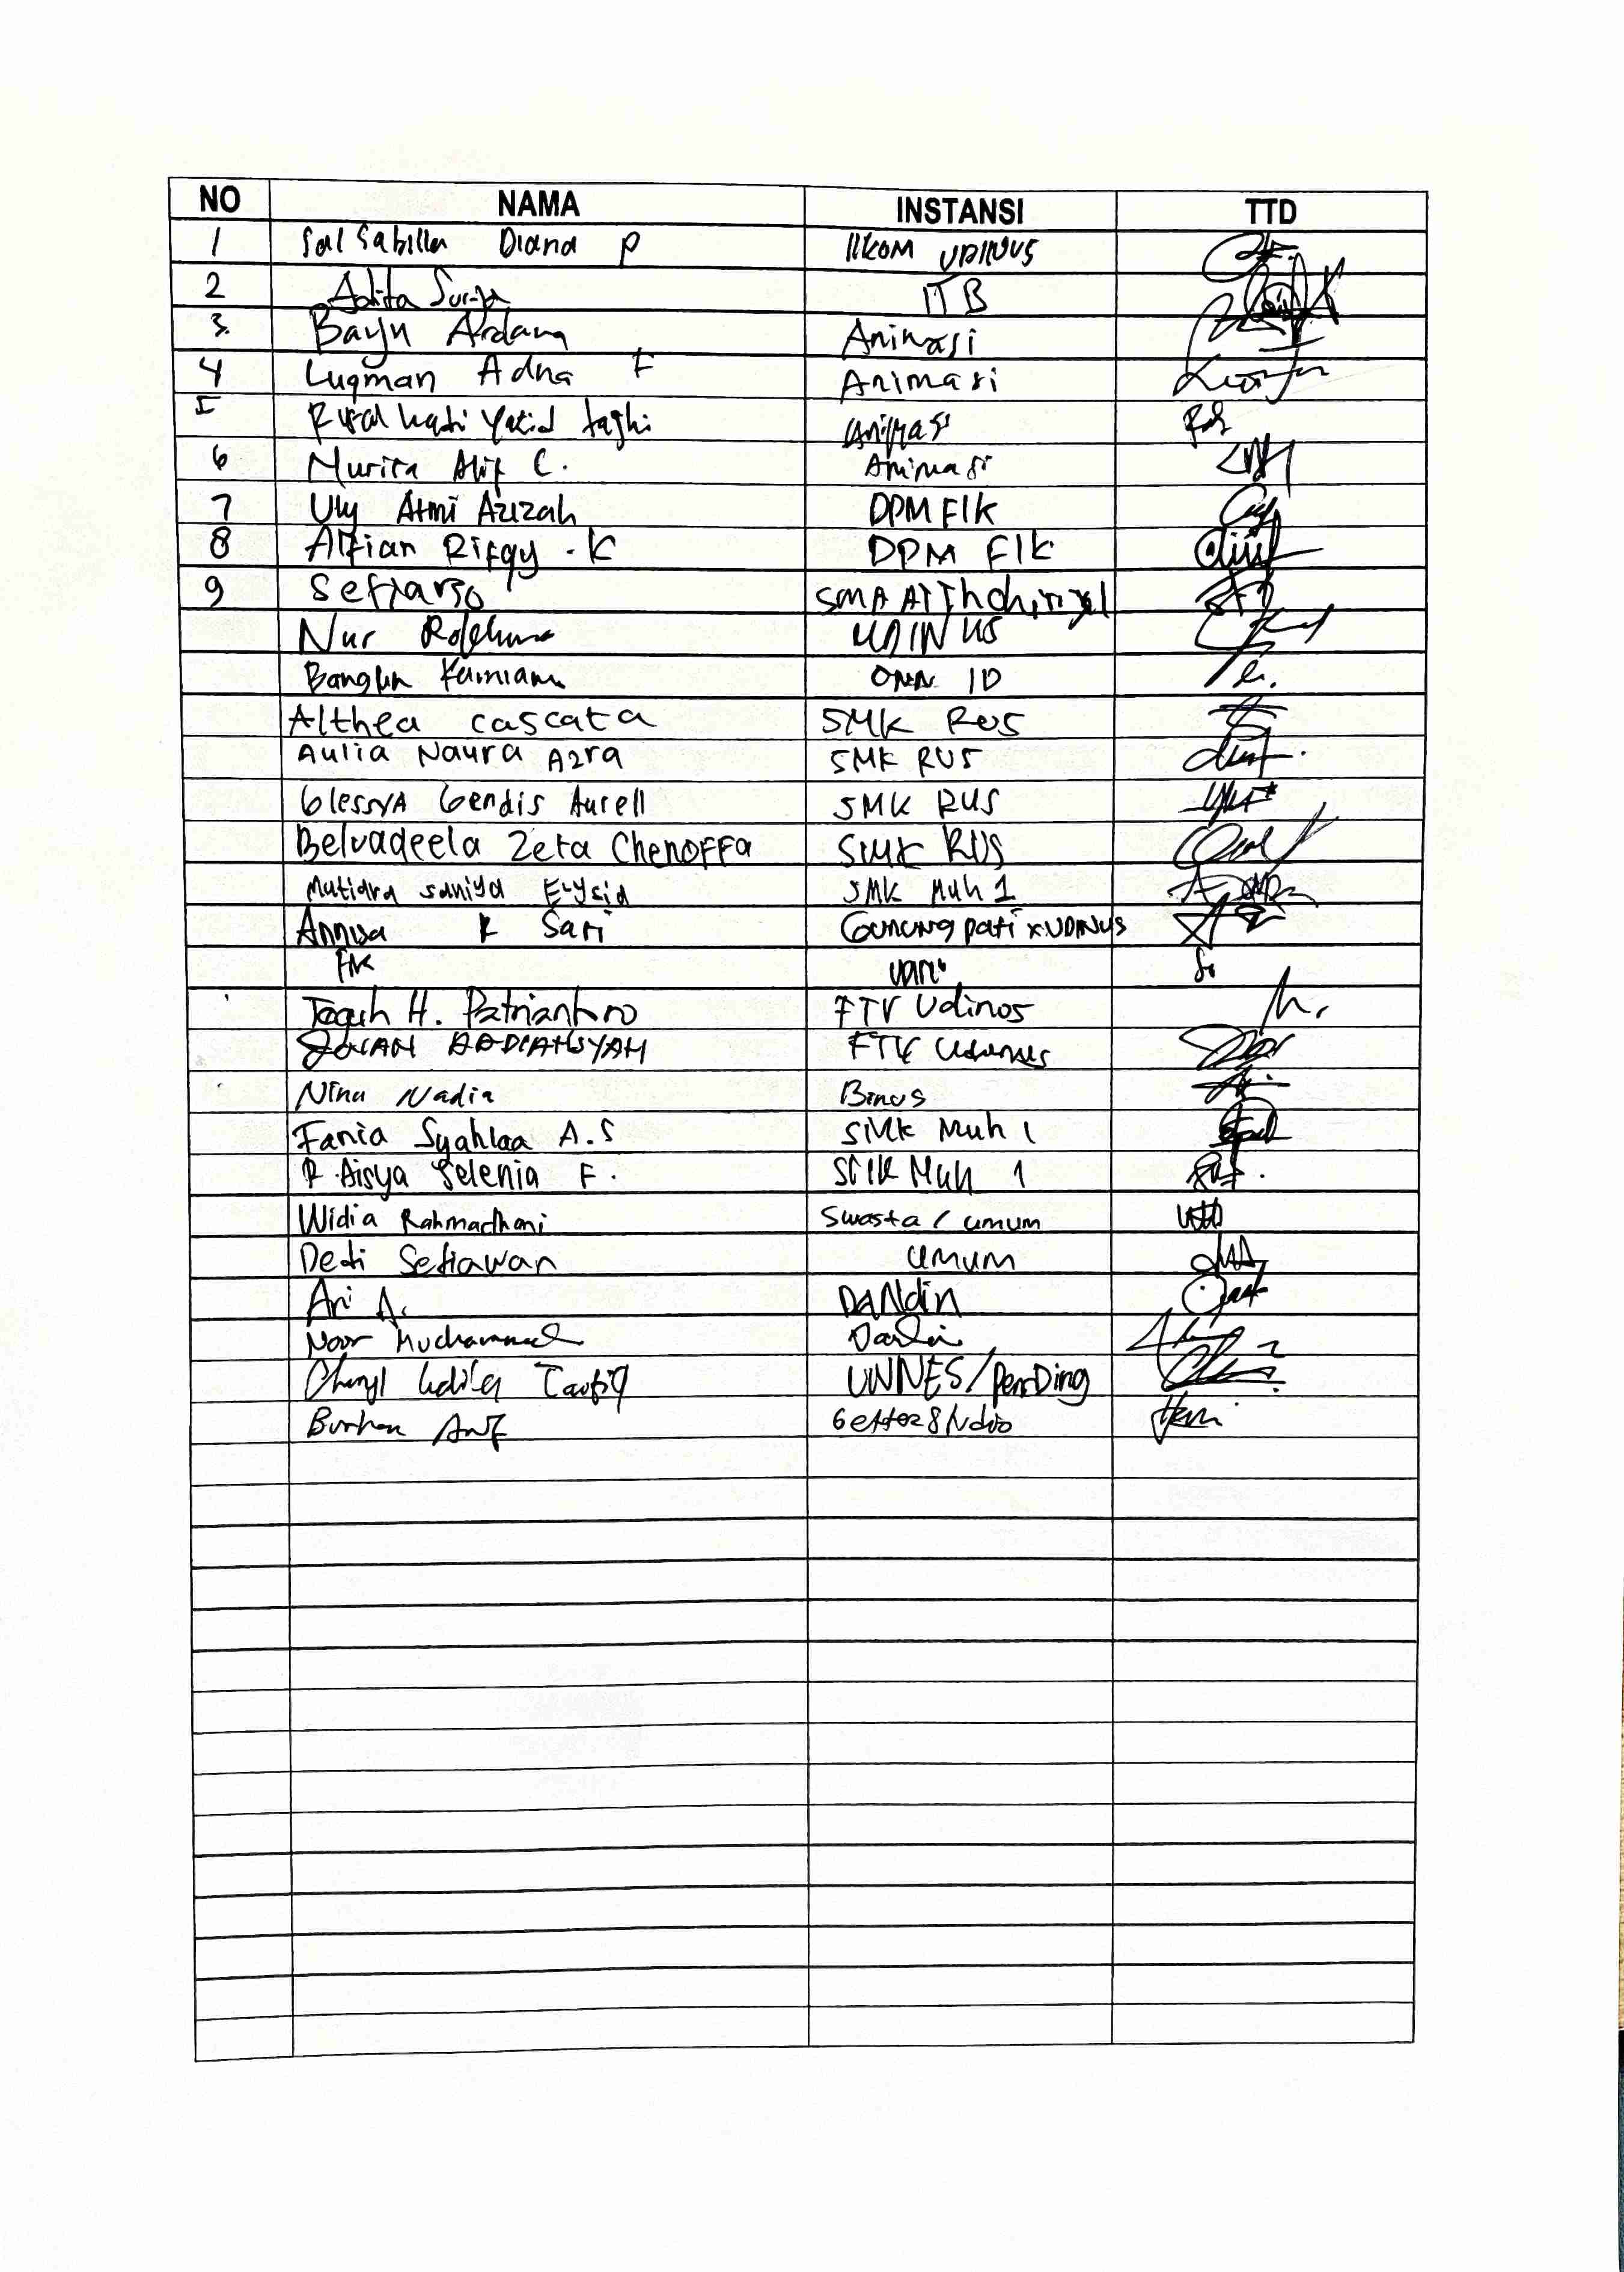 NO NAMA INSTANSI TTD
1 Salsabilla Diana P Ilkom UDINUS
2 Adita Surya ITB
3. Bayu Ardana Animasi
4 Luqman Adna F Animasi
5 Animasi
6 Nurita Alif C. Animasi
7 Uly Atmi Azizah DPM FIK
8 Alfian Rifqy . K DPM FIK
9 Setiarso SMA
Nur UDINUS
Bangun Kurniawan ID
Althea cascata SMK RUS
Aulia Naura Azra SMK RUS
Glessya Gendis Aurell SMK RUS
Belvadeela Zeta Chenoffa SMK RUS
Mutiara Saniya Elysia SMK Muh 1
Annisa K Sari Gunung pati x UDINUS
Teguh H. Patriantoro FTV Udinus
ARDIANSYAH FTV Udinus
Nina Nadia Binus
Fania Syahlaa A.S SMK Muh 1
R. Aisya Selenia F. SMK Muh 1
Widia Rahmadhani Swasta / umum
Dedi Setiawan umum
Ari A. DaNdin
Noor Muchammad
Cheryl Taufiq UNNES/PenDing
Burhan